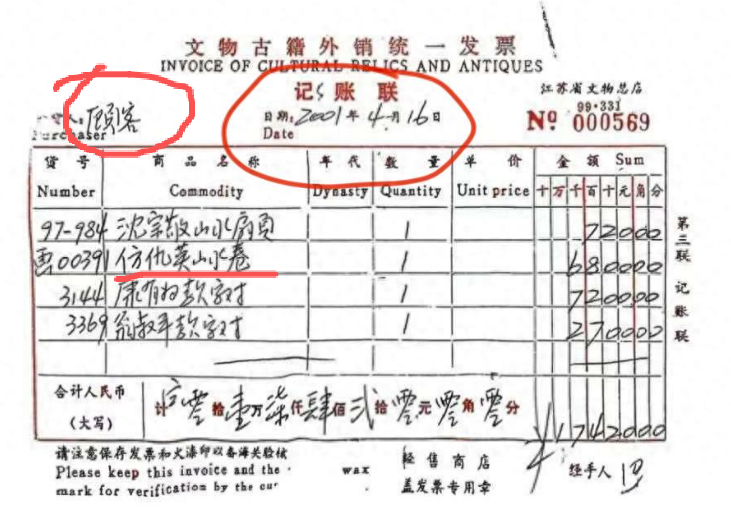 文物古籍外销统一发票
INVOICE OF CULTURAL RELICS AND ANTIQUES
记账联
江苏省文物总店
99·331
顾客
日期:2001年4月16日
Nº 000569
Purchaser
Date
货号 商品名称 年代 数量 单价 金额 Sum
Number Commodity Dynasty Quantity Unit price 十万千百十元角分
97-984 沈宗敬山水扇页 1 72000
00391 仿仇英山水卷 1 680000
3144 康有为款字对 1 720000
3369 翁叔平款字对 1 270000
第三联 记账联
合计人民币
(大写)
计 零拾壹万柒仟肆佰贰拾零元零角零分
¥1742000
请注意保存发票和火漆印以备海关验核
Please keep this invoice and the wax
mark for verification by the cus
经售商店
盖发票专用章
经手人